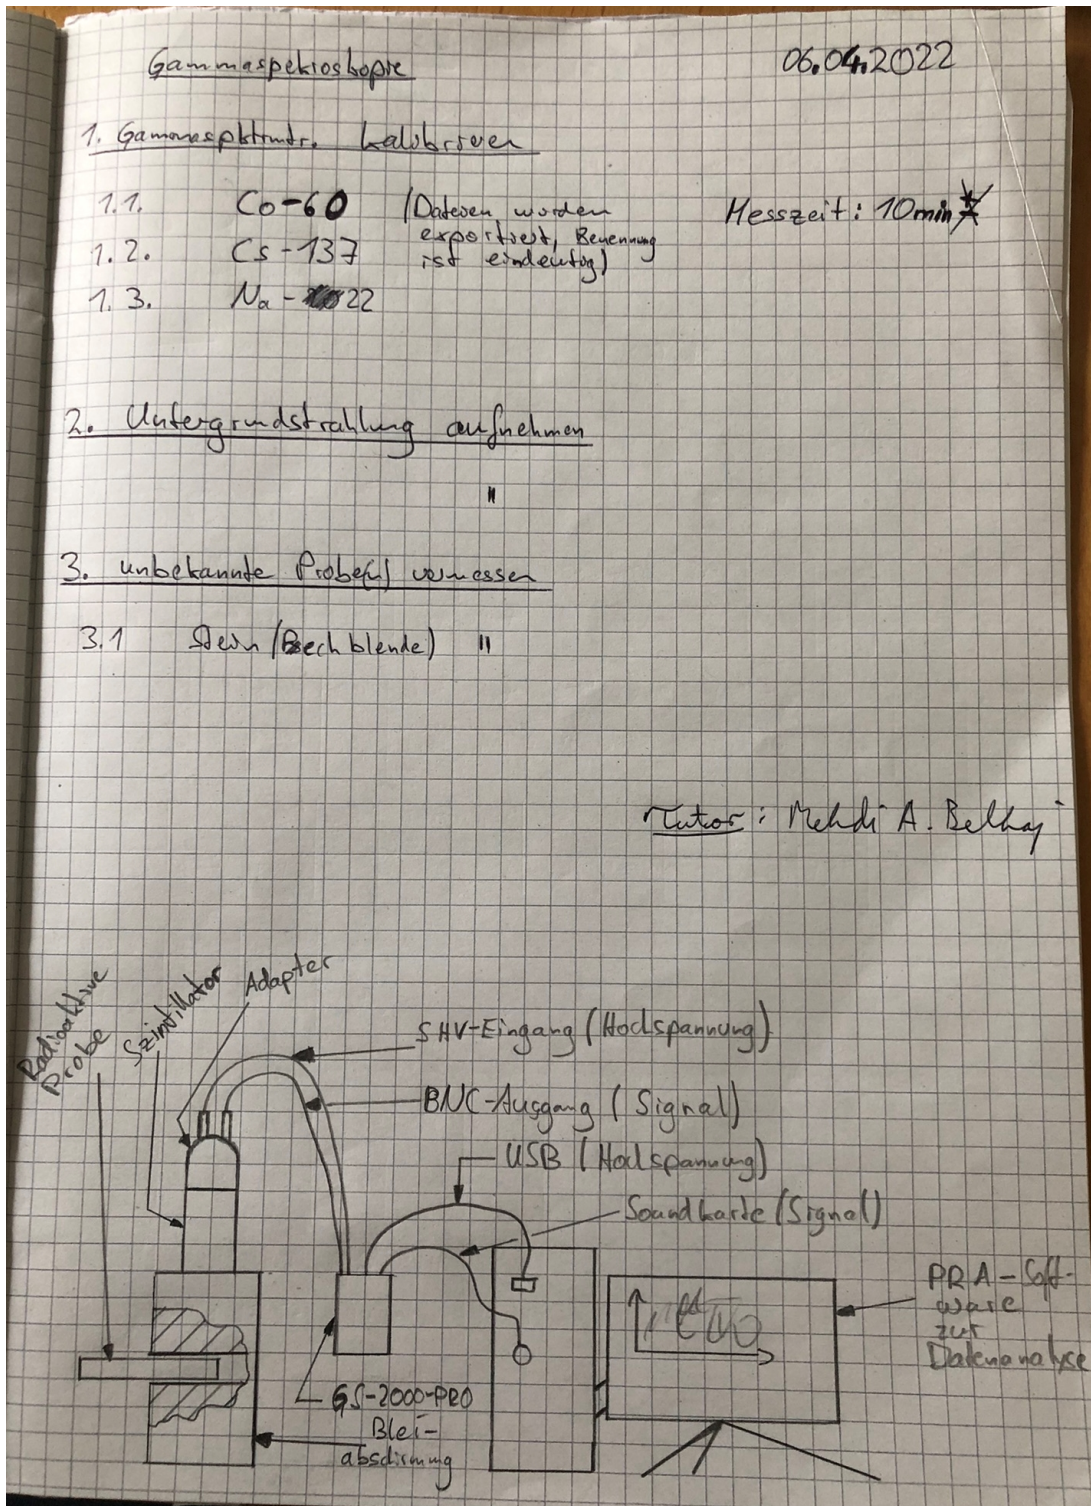 Gammaspektroskopie
06.04.2022
1. Gammaspktrmtr. kalibrieren
1.1. Co-60 (Dateien wurden
exportiert, Benennung
ist eindeutig)
Messzeit: 10min
1.2. Cs-137
1.3. Na-22
2. Untergrundstrahlung aufnehmen
"
3. unbekannte Probe(n) vermessen
3.1 Stein (Pechblende) "
Tutor: Mehdi A. Belhaj
Radioaktive
Probe
Szintillator
Adapter
SHV-Eingang (Hochspannung)
BNC-Ausgang (Signal)
USB (Hochspannung)
Soundkarte (Signal)
PRA-Soft-
ware
zur
Datenanalyse
GS-2000-PRO
Blei-
abschirmung